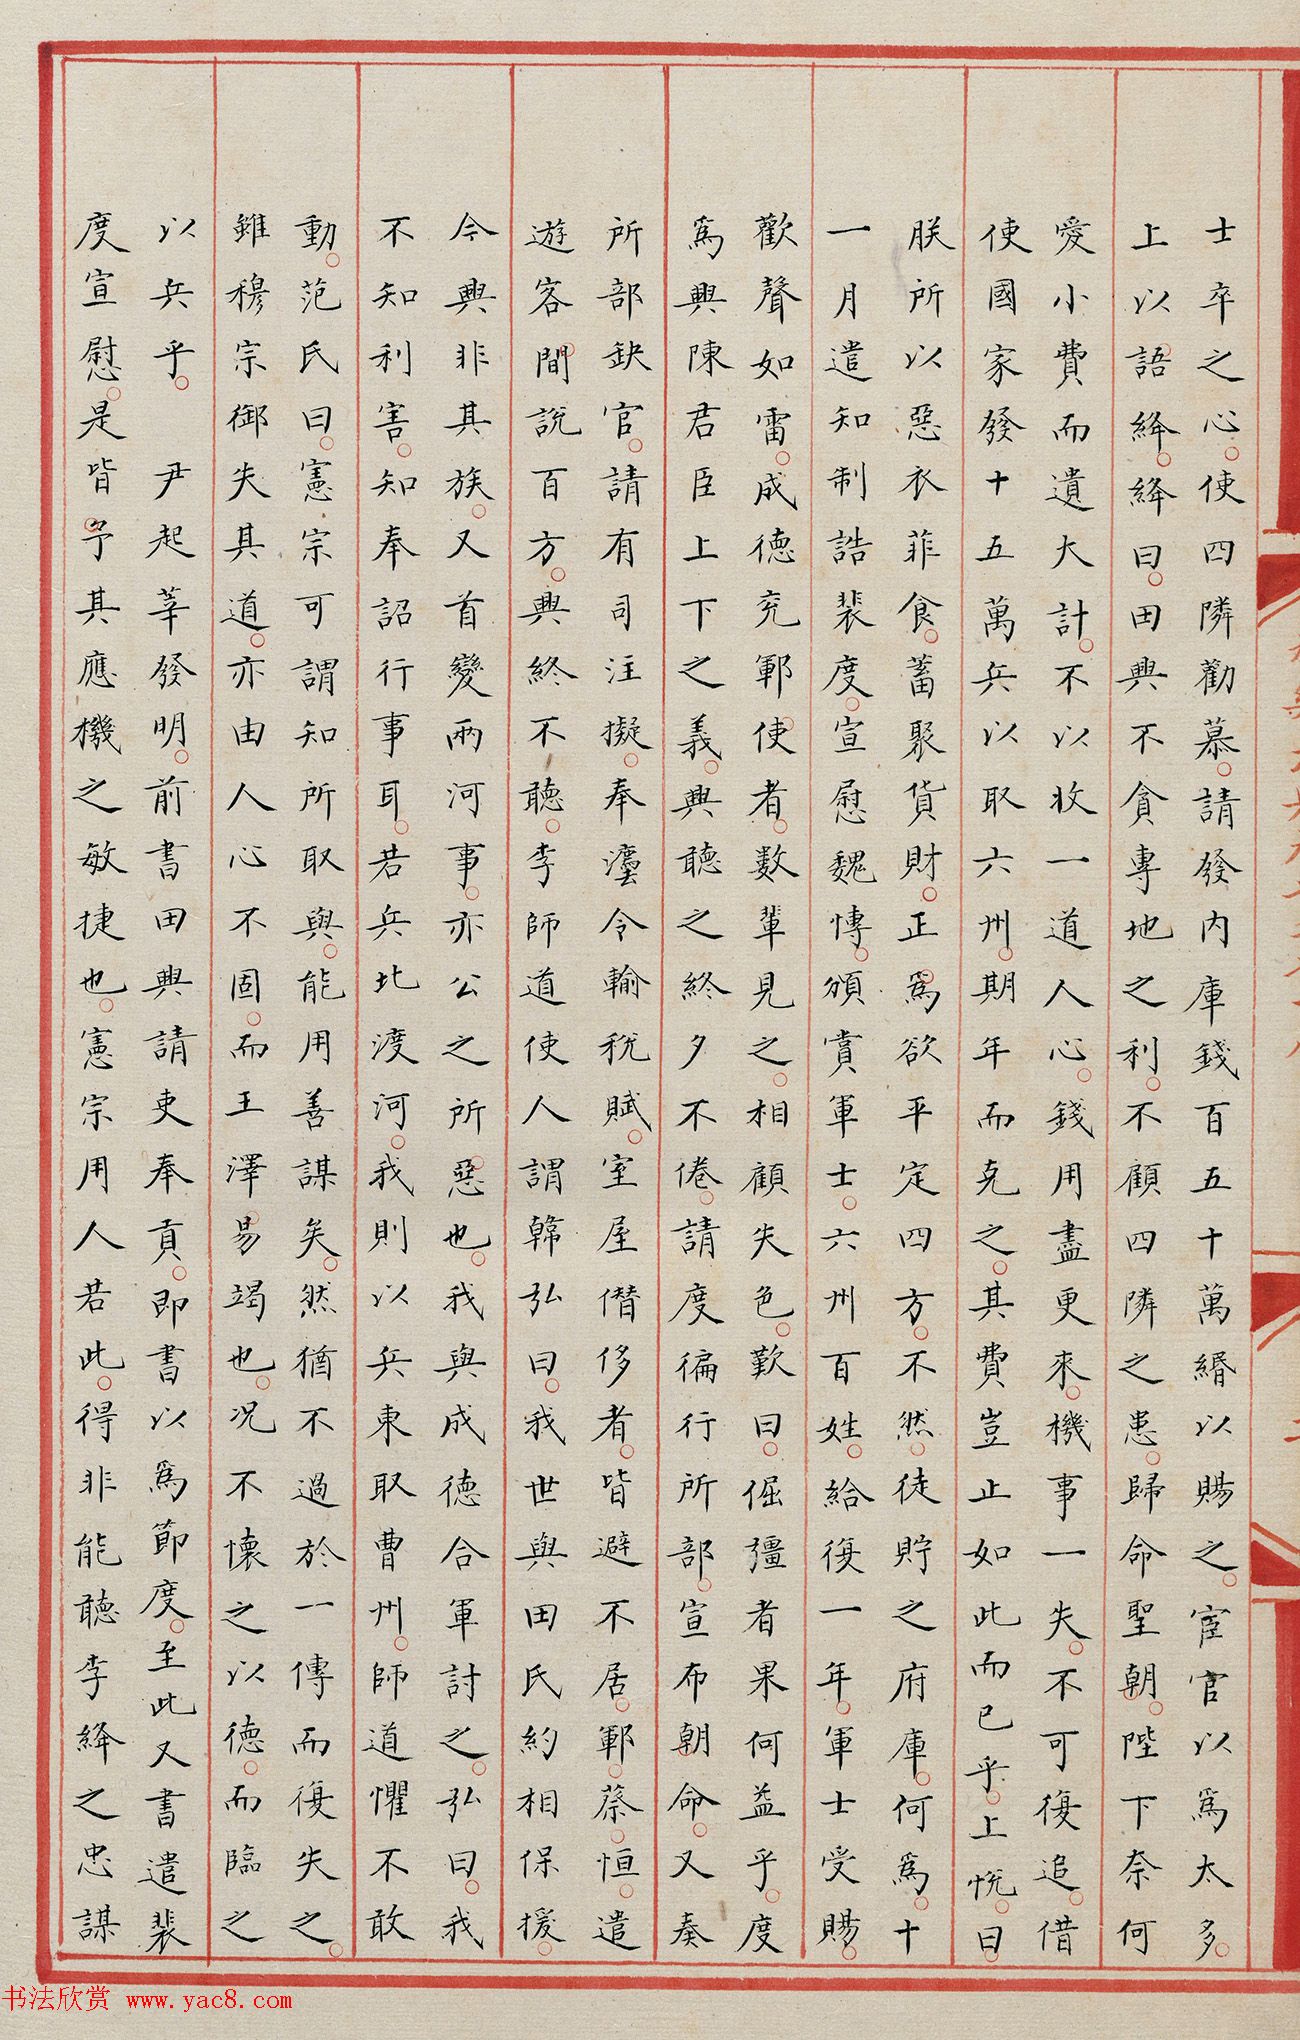 士卒之心。使四隣勸慕。請發内庫錢百五十萬緡以賜之。宦官以爲太多。
上以語絳。絳曰。田興不貪專地之利。不顧四隣之患。歸命聖朝。陛下奈何
愛小費而遺大計。不以收一道人心。錢用盡更來。機事一失。不可復追。借
使國家發十五萬兵以取六州。期年而克之。其費豈止如此而已乎。上悅。曰。
朕所以惡衣菲食。蓄聚貨財。正爲欲平定四方。不然。徒貯之府庫。何爲。十
一月遣知制誥裴度。宣慰魏博。頒賞軍士。六州百姓。給復一年。軍士受賜。
歡聲如雷。成德兖鄆使者。數輩見之。相顧失色。歎曰。倔彊者果何益乎。度
爲興陳君臣上下之義。興聽之終夕不倦。請度徧行所部。宣布朝命。又奏
所部缺官。請有司注擬。奉灋令輸稅賦。室屋僭侈者。皆避不居。鄆。蔡。恒。遣
遊客間說百方。興終不聽。李師道使人謂韓弘曰。我世與田氏約相保援。
今興非其族。又首變兩河事。亦公之所惡也。我與成德合軍討之。弘曰。我
不知利害。知奉詔行事耳。若兵北渡河。我則以兵東取曹州。師道懼不敢
動。范氏曰。憲宗可謂知所取與。能用善謀矣。然猶不過於一傳而復失之。
雖穆宗御失其道。亦由人心不固。而王澤易竭也。况不懷之以德。而臨之
以兵乎。 尹起莘發明。前書田興請吏奉貢。即書以爲節度。至此又書遣裴
度宣慰。是皆予其應機之敏捷也。憲宗用人若此。得非能聽李絳之忠謀
书法欣赏 www.yac8.com